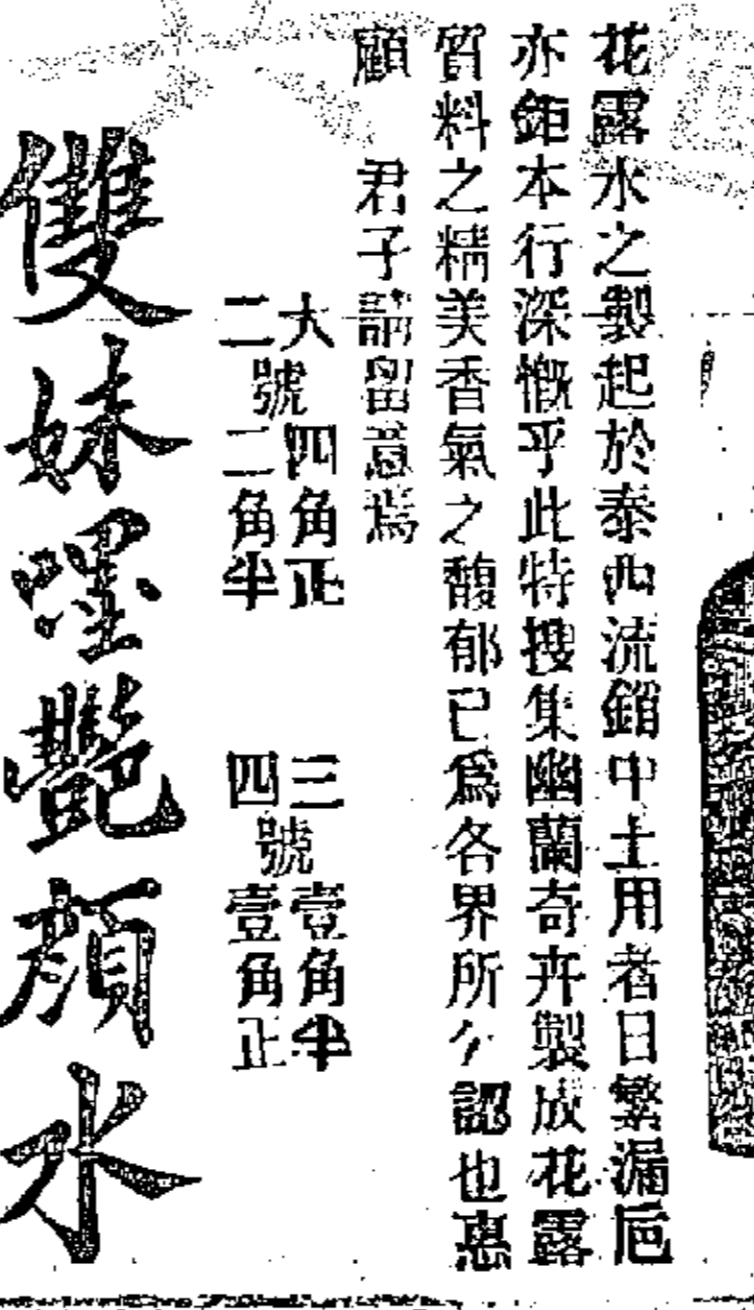 花露水之製起於泰西流銷中土用者日繁漏巵
亦鉅本行深慨乎此特搜集幽蘭奇卉製成花露
質料之精美香氣之馥郁已爲各界所公認也惠
顧 君子請留意焉
大 四角正 三 壹角半
號 號
二 二角半 四 壹角正
雙妹嚜艷顔水